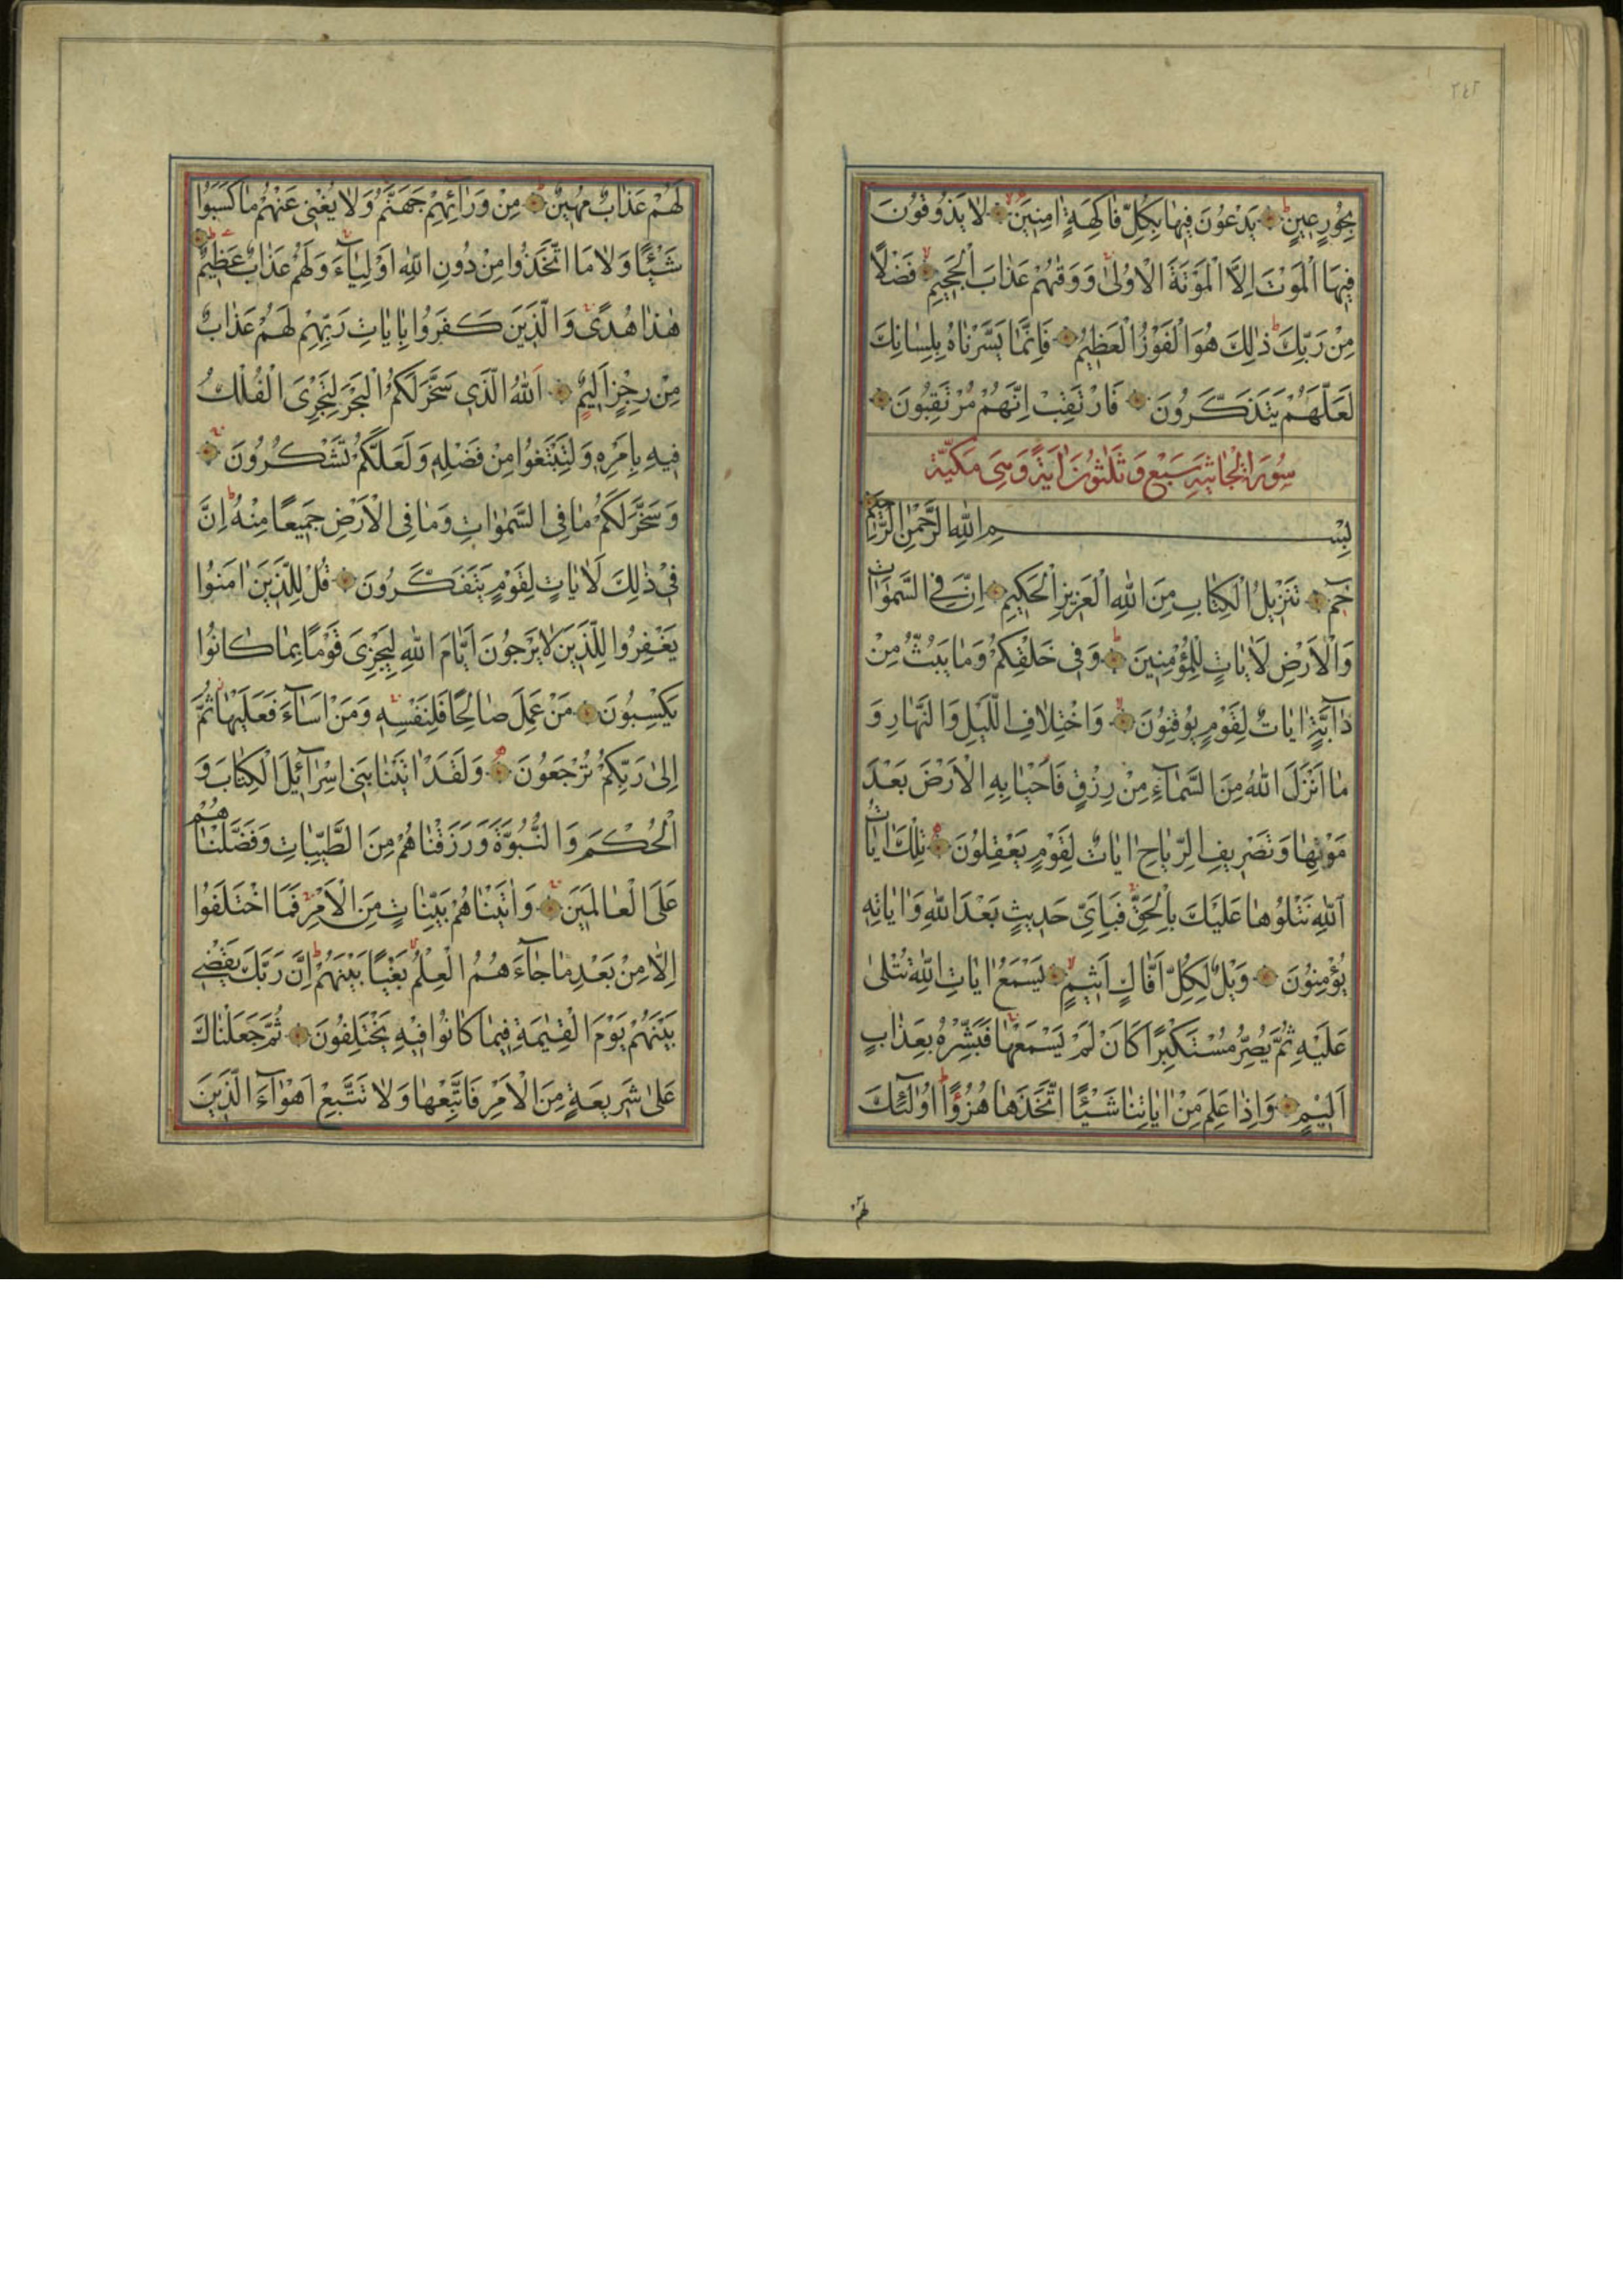 ٢٤٢
بِحُورٍ عِينٍ يَدْعُونَ فِيهَا بِكُلِّ فَاكِهَةٍ اٰمِنِينَ لَا يَذُوقُونَ
فِيهَا الْمَوْتَ اِلَّا الْمَوْتَةَ الْاُولٰى وَوَقٰيهُمْ عَذَابَ الْجَحِيمِ فَضْلًا
مِنْ رَبِّكَ ذٰلِكَ هُوَ الْفَوْزُ الْعَظِيمُ فَاِنَّمَا يَسَّرْنَاهُ بِلِسَانِكَ
لَعَلَّهُمْ يَتَذَكَّرُونَ فَارْتَقِبْ اِنَّهُمْ مُرْتَقِبُونَ
سُورَةُ الْجَاثِيَةِ سَبْعٌ وَثَلٰثُونَ اٰيَةً وَهِىَ مَكِّيَّةٌ
بِسْمِ اللّٰهِ الرَّحْمٰنِ الرَّحِيمِ
حٰمٓ تَنْزِيلُ الْكِتَابِ مِنَ اللّٰهِ الْعَزِيزِ الْحَكِيمِ اِنَّ فِى السَّمٰوَاتِ
وَالْاَرْضِ لَاٰيَاتٍ لِلْمُؤْمِنِينَ وَفِى خَلْقِكُمْ وَمَا يَبُثُّ مِنْ
دَآبَّةٍ اٰيَاتٌ لِقَوْمٍ يُوقِنُونَ وَاخْتِلَافِ الَّيْلِ وَالنَّهَارِ وَ
مَا اَنْزَلَ اللّٰهُ مِنَ السَّمَآءِ مِنْ رِزْقٍ فَاَحْيَا بِهِ الْاَرْضَ بَعْدَ
مَوْتِهَا وَتَصْرِيفِ الرِّيَاحِ اٰيَاتٌ لِقَوْمٍ يَعْقِلُونَ تِلْكَ اٰيَاتُ
اللّٰهِ نَتْلُوهَا عَلَيْكَ بِالْحَقِّ فَبِاَىِّ حَدِيثٍ بَعْدَ اللّٰهِ وَاٰيَاتِهِ
يُؤْمِنُونَ وَيْلٌ لِكُلِّ اَفَّاكٍ اَثِيمٍ يَسْمَعُ اٰيَاتِ اللّٰهِ تُتْلٰى
عَلَيْهِ ثُمَّ يُصِرُّ مُسْتَكْبِرًا كَاَنْ لَمْ يَسْمَعْهَا فَبَشِّرْهُ بِعَذَابٍ
اَلِيمٍ وَاِذَا عَلِمَ مِنْ اٰيَاتِنَا شَيْئًا اتَّخَذَهَا هُزُوًا اُولٰٓئِكَ
لهم
لَهُمْ عَذَابٌ مُهِينٌ مِنْ وَرَآئِهِمْ جَهَنَّمُ وَلَا يُغْنِى عَنْهُمْ مَا كَسَبُوا
شَيْئًا وَلَا مَا اتَّخَذُوا مِنْ دُونِ اللّٰهِ اَوْلِيَآءَ وَلَهُمْ عَذَابٌ عَظِيمٌ
هٰذَا هُدًى وَالَّذِينَ كَفَرُوا بِاٰيَاتِ رَبِّهِمْ لَهُمْ عَذَابٌ
مِنْ رِجْزٍ اَلِيمٍ اَللّٰهُ الَّذِى سَخَّرَ لَكُمُ الْبَحْرَ لِتَجْرِىَ الْفُلْكُ
فِيهِ بِاَمْرِهِ وَلِتَبْتَغُوا مِنْ فَضْلِهِ وَلَعَلَّكُمْ تَشْكُرُونَ
وَسَخَّرَ لَكُمْ مَا فِى السَّمٰوَاتِ وَمَا فِى الْاَرْضِ جَمِيعًا مِنْهُ اِنَّ
فِى ذٰلِكَ لَاٰيَاتٍ لِقَوْمٍ يَتَفَكَّرُونَ قُلْ لِلَّذِينَ اٰمَنُوا
يَغْفِرُوا لِلَّذِينَ لَا يَرْجُونَ اَيَّامَ اللّٰهِ لِيَجْزِىَ قَوْمًا بِمَا كَانُوا
يَكْسِبُونَ مَنْ عَمِلَ صَالِحًا فَلِنَفْسِهِ وَمَنْ اَسَآءَ فَعَلَيْهَا ثُمَّ
اِلٰى رَبِّكُمْ تُرْجَعُونَ وَلَقَدْ اٰتَيْنَا بَنِى اِسْرَآئِيلَ الْكِتَابَ وَ
الْحُكْمَ وَالنُّبُوَّةَ وَرَزَقْنَاهُمْ مِنَ الطَّيِّبَاتِ وَفَضَّلْنَاهُمْ
عَلَى الْعَالَمِينَ وَاٰتَيْنَاهُمْ بَيِّنَاتٍ مِنَ الْاَمْرِ فَمَا اخْتَلَفُوا
اِلَّا مِنْ بَعْدِ مَا جَآءَهُمُ الْعِلْمُ بَغْيًا بَيْنَهُمْ اِنَّ رَبَّكَ يَقْضِى
بَيْنَهُمْ يَوْمَ الْقِيٰمَةِ فِيمَا كَانُوا فِيهِ يَخْتَلِفُونَ ثُمَّ جَعَلْنَاكَ
عَلٰى شَرِيعَةٍ مِنَ الْاَمْرِ فَاتَّبِعْهَا وَلَا تَتَّبِعْ اَهْوَآءَ الَّذِينَ